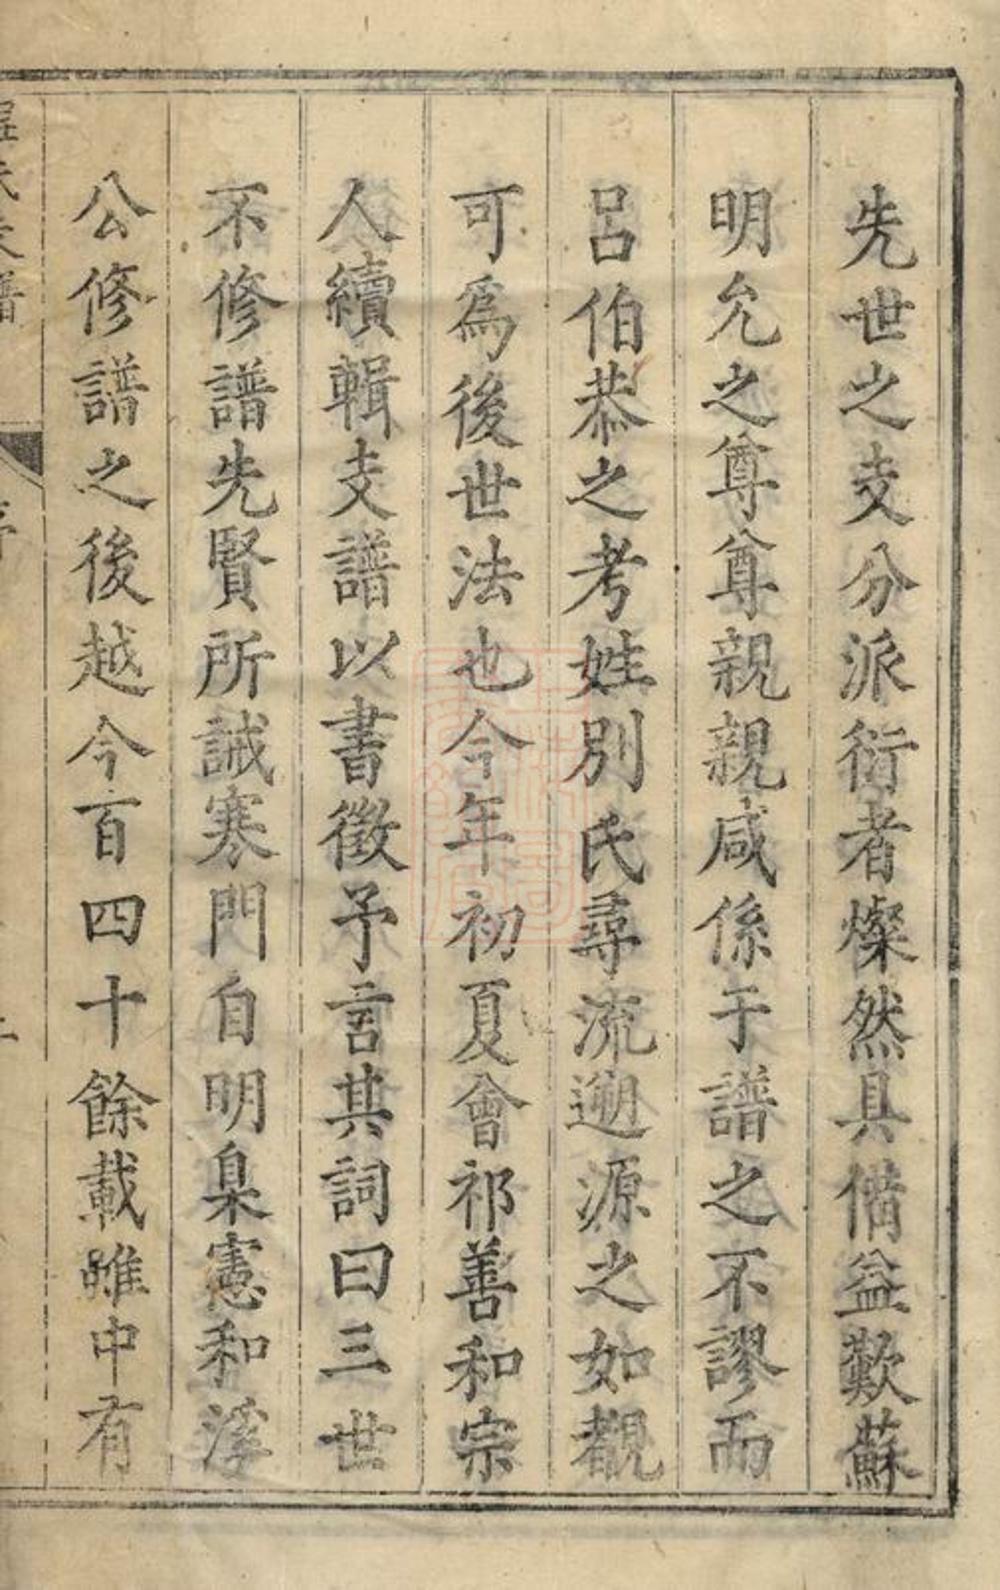 先世之支分派衍者燦然具備益歎蘇
明允之尊尊親親咸係于譜之不謬而
呂伯恭之考姓別氏尋流遡源之如覩
可為後世法也今年初夏會祁善和宗
人續輯支譜以書徵予言其詞曰三世
不修譜先賢所誡寒門自明臬憲和溪
公修譜之後越今百四十餘載雖中有